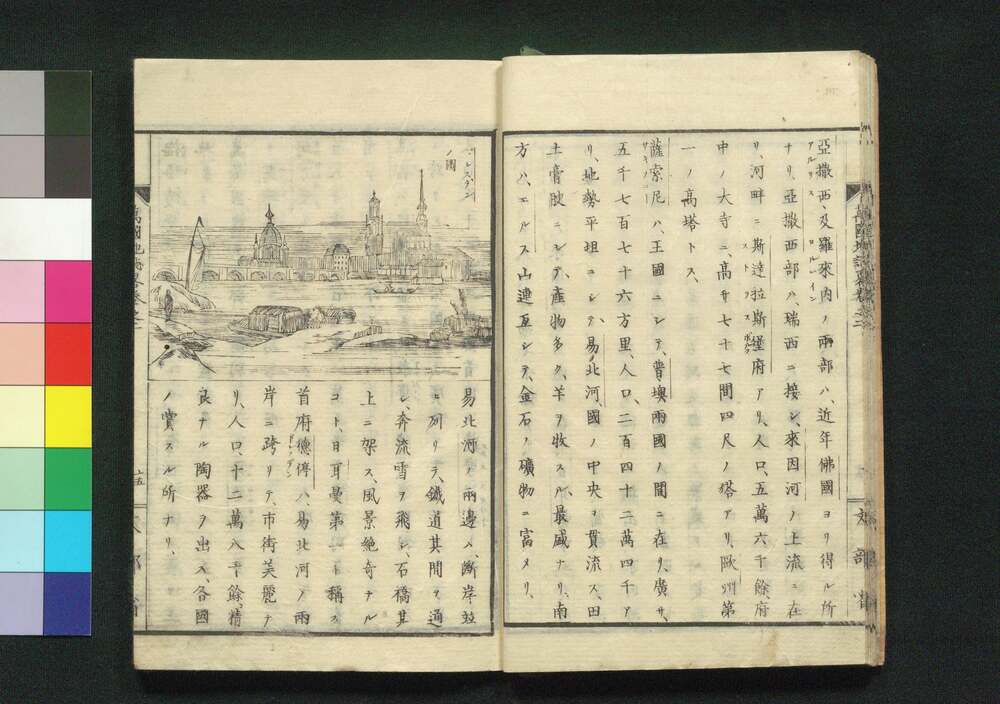 亞撒西、及羅來內ノ兩部ハ、近年佛國ヨリ得ル所
アルサス ロルレイン
ナリ、亞撒西部ハ、瑞西ニ接シ、來因河ノ上流ニ在
リ、河畔ニ斯達拉斯堡府アリ、人口、五萬六千餘、府
ストラスボルグ
中ノ大寺ニ、高サ七十七間四尺ノ塔アリ、歐洲第
一ノ高塔トス、
薩索尼ハ、王國ニシテ、普墺兩國ノ間ニ在リ、廣サ、
サキソニー
五千七百七十六方里、人口、二百四十二萬四千ア
リ、地勢平坦ニシテ、易北河、國ノ中央ヲ貫流ス、田
土膏腴ニシテ、產物多ク、羊ヲ牧スル、最盛ナリ、南
方ハ、エルス山連亙シテ、金石ノ礦物ニ富メリ、
萬國地誌略卷之二
文部省
ドレスデン
ノ圖
易北河ノ兩邊ハ、斷岸竝
ニ列リテ、鐵道其間ヲ通
シ、奔流雪ヲ飛シ、石橋其
上ニ架ス、風景絶奇ナル
コト、日耳曼第一ト稱ス
首府德停ハ、易北河ノ兩
岸ニ跨リテ、市街美麗ナ
リ、人口、十二萬八千餘、精
良ナル陶器ヲ出ス、各國
ノ賞スル所ナリ、
萬國地誌略卷之二
十五
文部省